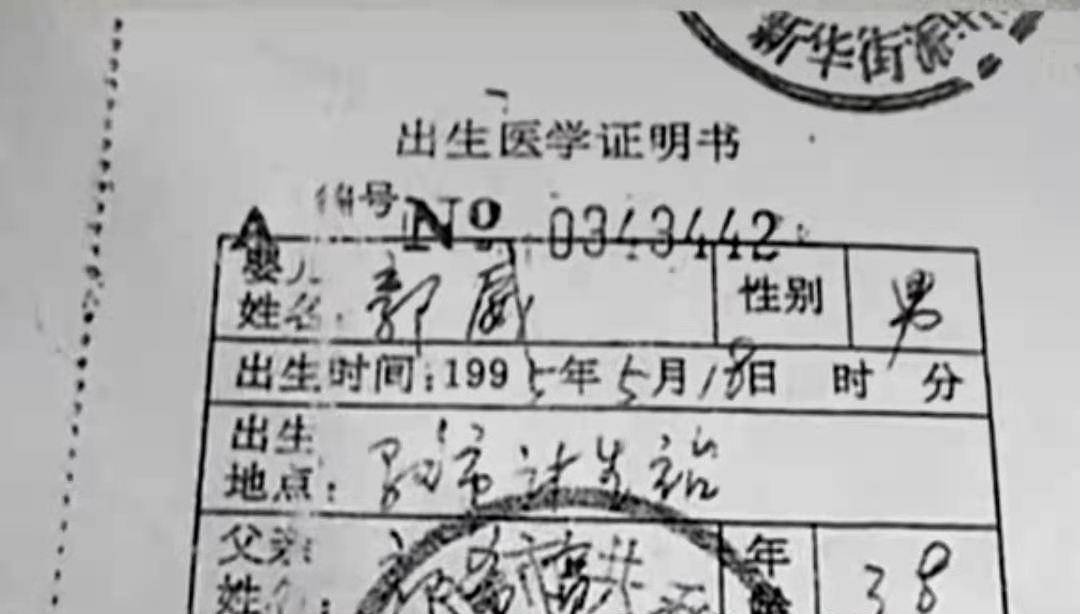 新华街派
出生医学证明书
A 编号 No 0343442
婴儿姓名: 郭威 性别 男
出生时间:1995年5月18日 时 分
出生地点:
父亲姓名: 年龄 38